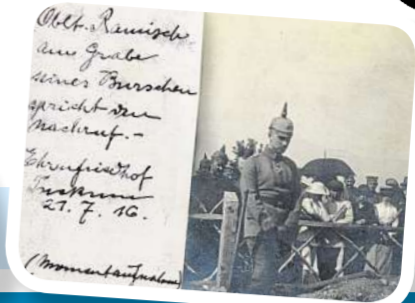 Oblt. Ramisch
am Grabe
seines Burschen
spricht den
Nachruf. -
Ehrenfriedhof
21. 7. 16.
(Momentaufnahme)